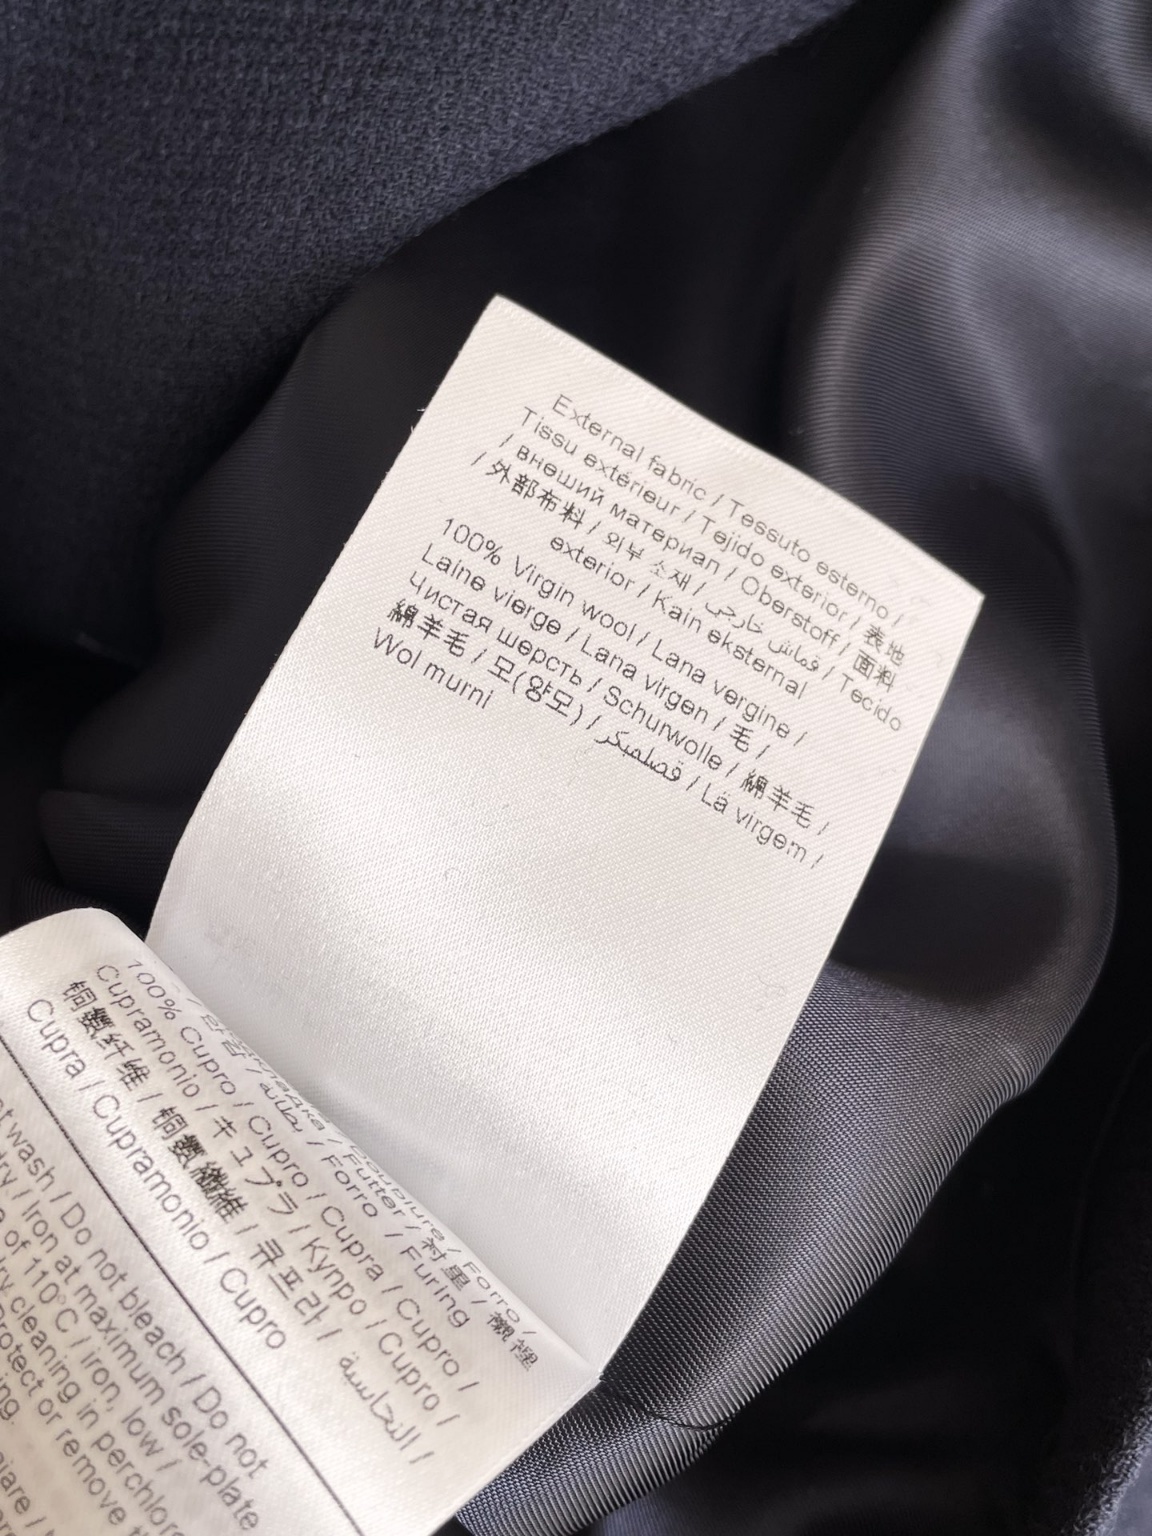 External fabric / Tessuto esterno /
Tissu extérieur / Tejido exterior / 表地
/ внеший материал / Oberstoff / 面料
/ 外部布料 / 외부 소재 / قماش خارجى / Tecido
exterior / Kain eksternal
100% Virgin wool / Lana vergine /
Laine vierge / Lana virgen / 毛 /
Чистая шерсть / Schurwolle / 綿羊毛 /
綿羊毛 / 모(양모) / قصلمبكر / Lä virgem /
Wol murni
/ Forro /
/ Futter / 衬里 / 襯裡
/ 안감 / بطانة / Forro / Furing
100% Cupro / Cupro / Cupra / Cupro /
Cupramonio / キュプラ / Купро / Cupro /
铜氨纤维 / 铜氨纖維 / 큐프라 / النحاسية /
Cupra / Cupramonio / Cupro
wash / Do not bleach / Do not
dry / Iron at maximum sole-plate
of 110°C / Iron, low /
cleaning in
Protect or remove